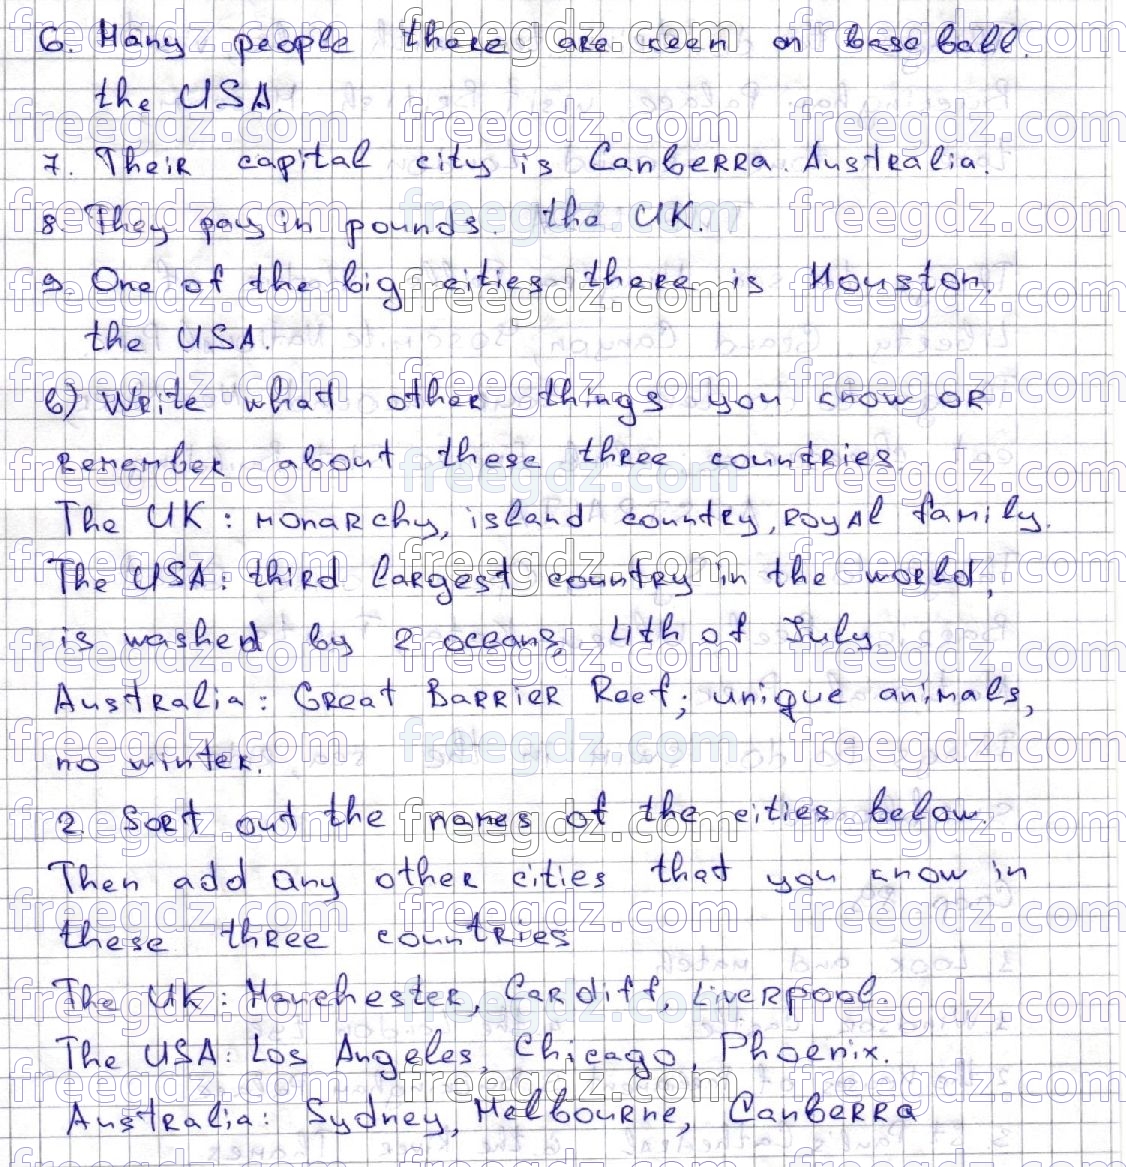 6. Many people there are keen on baseball.
the USA.
7. Their capital city is Canberra. Australia.
8. They pay in pounds. the UK.
9. One of the big cities there is Houston.
the USA.
b) Write what other things you know or
remember about these three countries.
The UK: monarchy, island country, royal family.
The USA: third largest country in the world,
is washed by 2 oceans, 4th of July
Australia: Great Barrier Reef; unique animals,
no winter.
2. Sort out the names of the cities below.
Then add any other cities that you know in
these three countries
The UK: Manchester, Cardiff, Liverpool.
The USA: Los Angeles, Chicago, Phoenix.
Australia: Sydney, Melbourne, Canberra